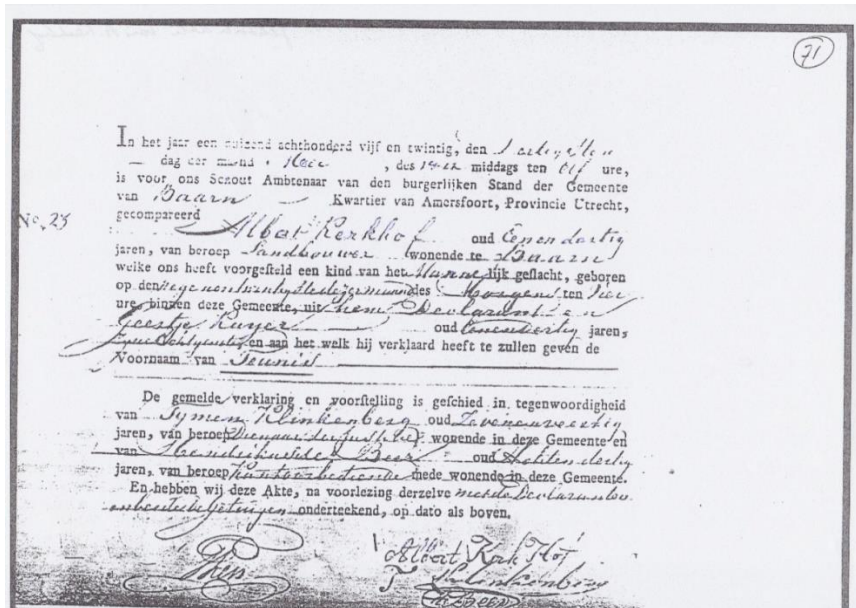 71
In het jaar een duizend achthonderd vijf en twintig, den Dertigsten
— dag der maand Mei , des middags ten Elf ure,
is voor ons Schout Ambtenaar van den burgerlijken Stand der Gemeente
van Baarn — Kwartier van Amersfoort, Provincie Utrecht,
No. 23
gecompareerd
Albert Kerkhof oud Eenendertig
jaren, van beroep Landbouwer wonende te Baarn
welke ons heeft voorgesteld een kind van het Mannelijk geslacht, geboren
op den negenentwintigsten dezer maand des Morgens ten Vier
ure, binnen deze Gemeente, uit hem Declarant en
Geertje Ruyer — oud jaren,
en aan het welk hij verklaard heeft te zullen geven de
Voornaam van Teunis
De gemelde verklaring en voorstelling is geschied in tegenwoordigheid
van Tymen Klinkenberg oud Zevenenveertig
jaren, van beroep Dienaar der Justitie wonende in deze Gemeente en
van Hendrikus de Beer oud Achtendertig
jaren, van beroep Kantoorbediende mede wonende in deze Gemeente.
En hebben wij deze Akte, na voorlezing derzelve met de Declarant
en beide getuigen onderteekend, op dato als boven.
Albert Kerk Hof
T Klinkenberg